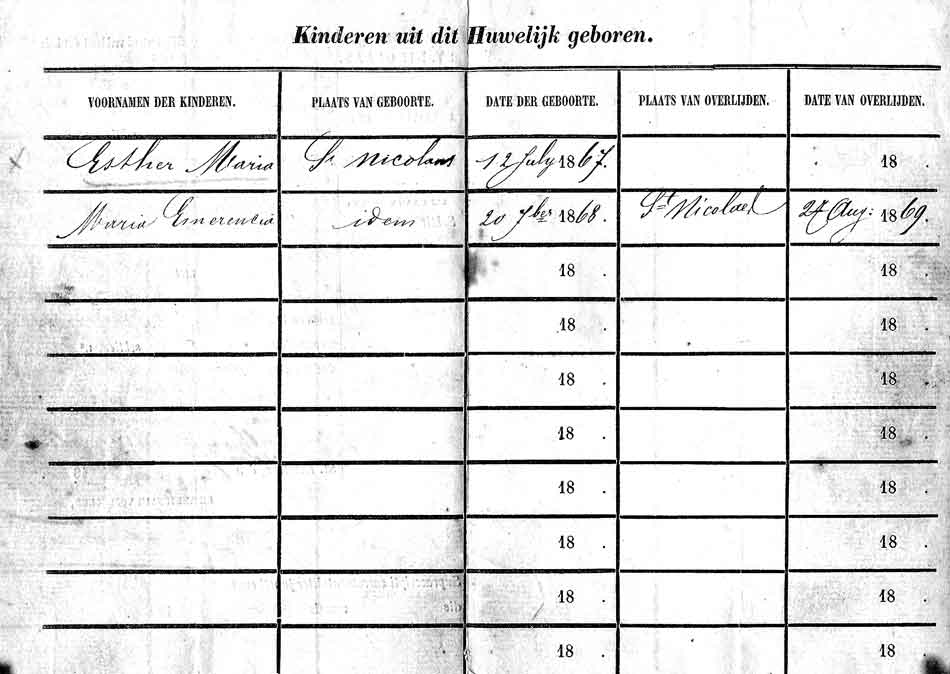 Kinderen uit dit Huwelijk geboren.
VOORNAMEN DER KINDEREN. PLAATS VAN GEBOORTE. DATE DER GEBOORTE. PLAATS VAN OVERLIJDEN. DATE VAN OVERLIJDEN.
Esther Maria St Nicolaas 12 July 1867. 18 .
Maria Emerencia idem 20 7ber 1868. St Nicolaes Aug: 1869.
18 . 18 .
18 . 18 .
18 . 18 .
18 . 18 .
18 . 18 .
18 . 18 .
18 . 18 .
18 . 18 .